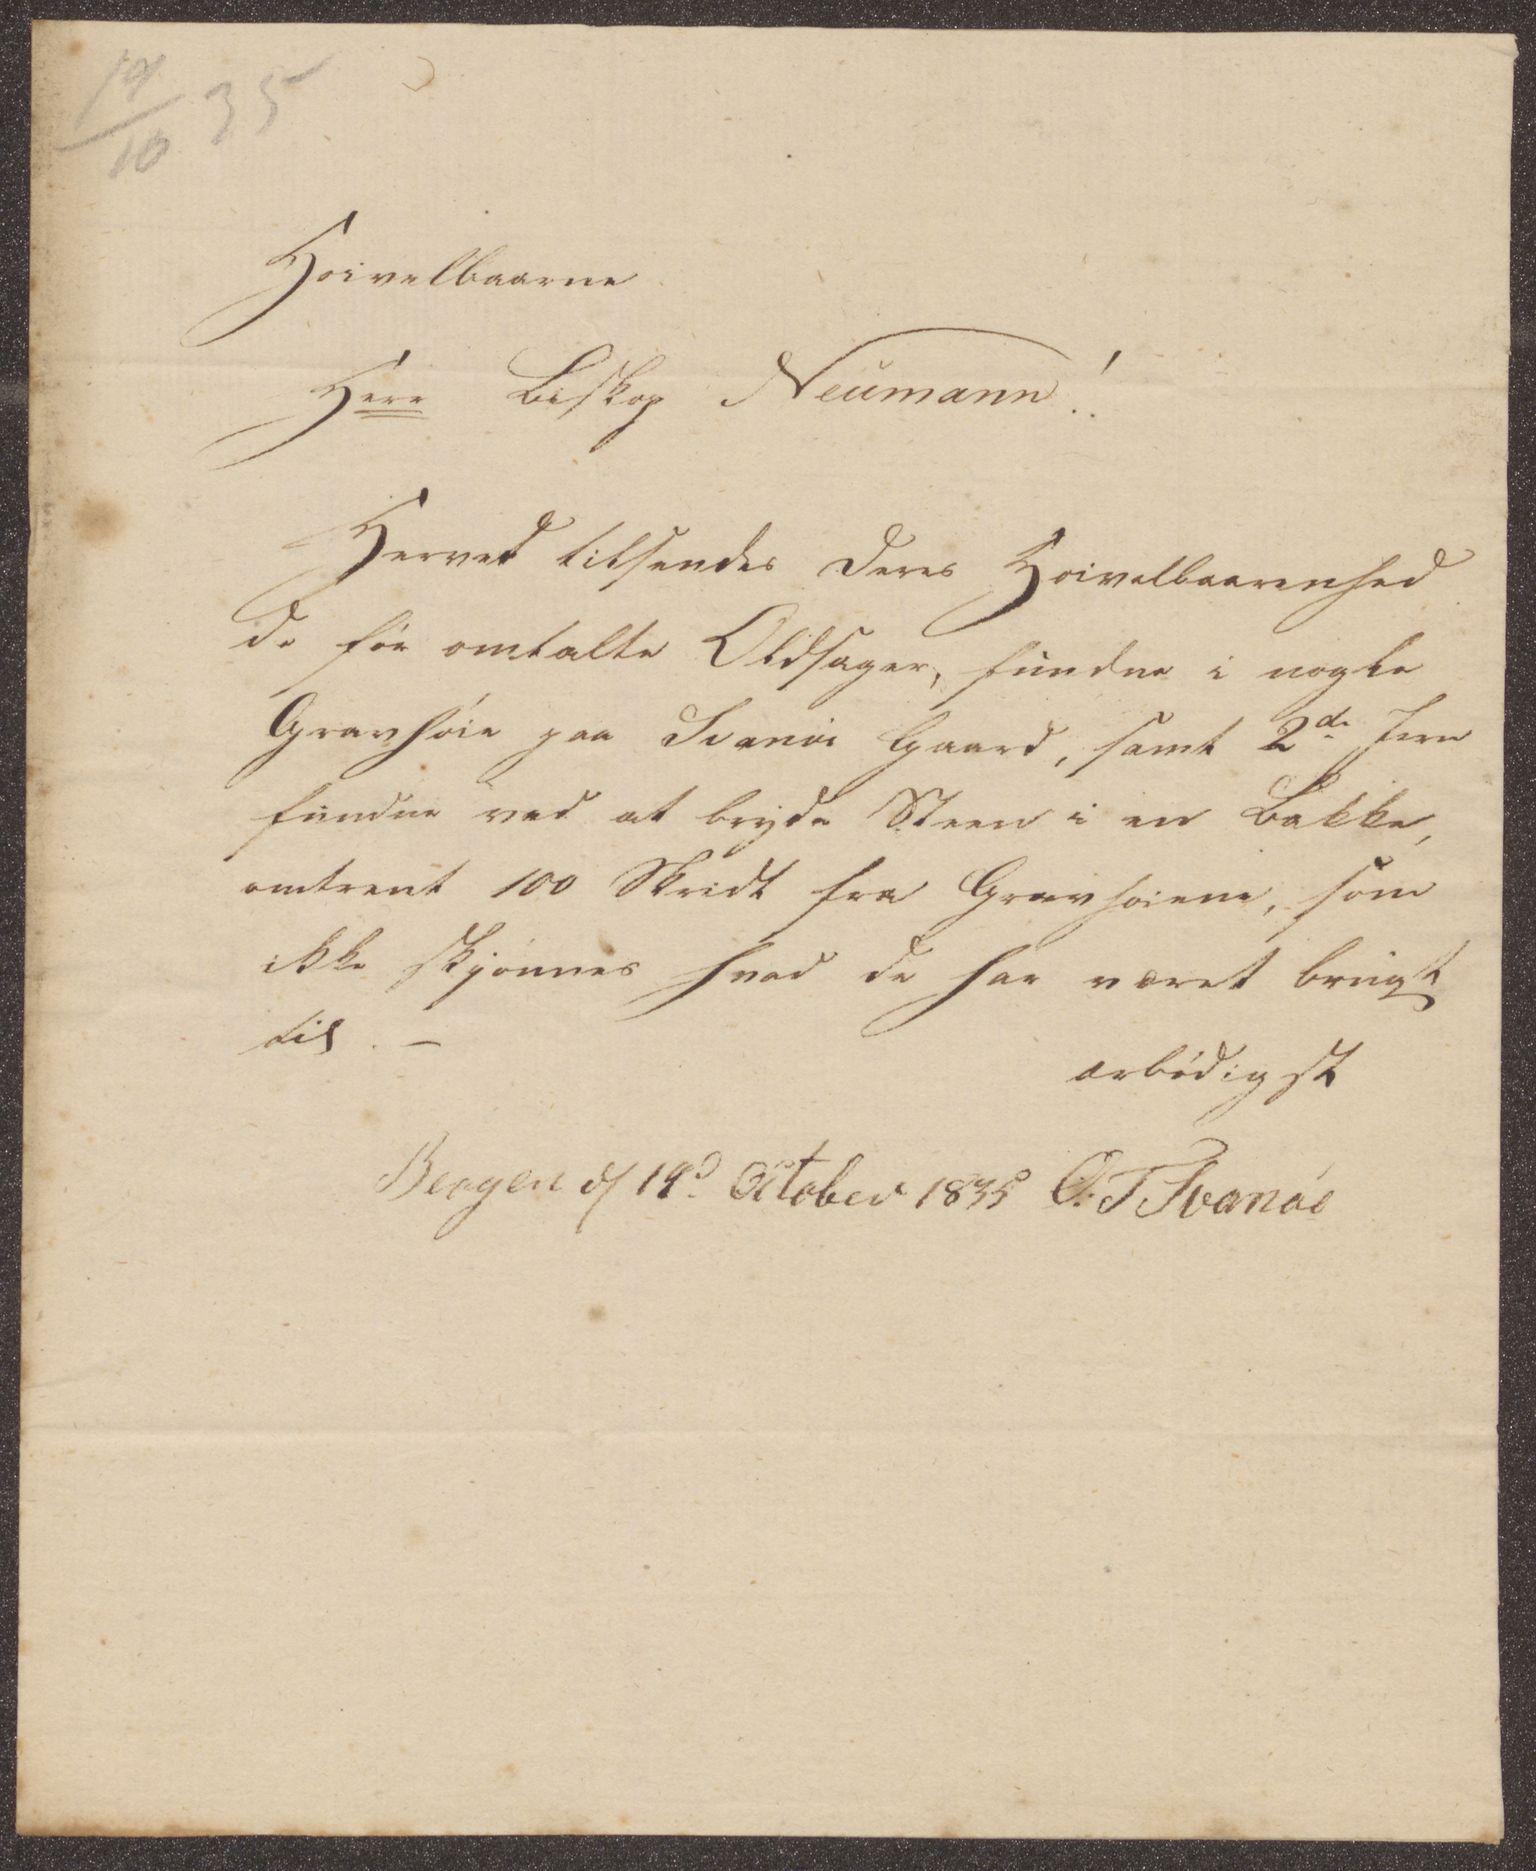 19/10 35
Høivelbaarne
Herr Biskop Neumann!
Herved tilsendes Deres Høivelbaarenhed
de før omtalte Oldsager, fundne i nogle
Gravhøie paa Svanøe Gaard, samt 2de Jern
fundne ved at bryde Steen i en Bakke,
omtrent 100 Skridt fra Gravhøiene, som
ikke skjønnes hvad de har været brugt
til. —
ærbødigst
Bergen d 19d October 1835 O. T Svanøe